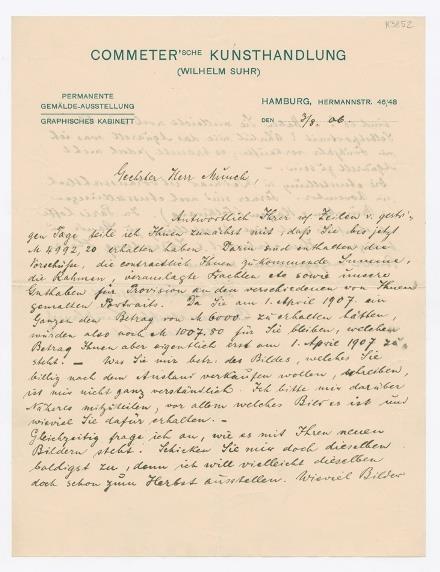 K3852
COMMETER'SCHE KUNSTHANDLUNG
(WILHELM SUHR)
PERMANENTE
GEMÄLDE-AUSSTELLUNG
GRAPHISCHES KABINETT
HAMBURG, HERMANNSTR. 46/48
DEN 3/8. 06.
Geehrter Herr Munch,
Antwortlich Ihrer Zeilen v. gestri-
gen Tage teile ich Ihnen zunächst mit, daß Sie bis jetzt
M 4992,20 erhalten haben. Darin sind enthalten die
Vorschüsse, die contractlich Ihnen zukommende Summe,
die Rahmen, verauslagte Frachten etc sowie unsere
Guthaben für Provision an den verschiedenen von Ihnen
gemalten Portraits. Da Sie am 1. April 1907. ein
Ganzes den Betrag von M 6000 - zu erhalten hätten,
würden also noch M 1007.80 für Sie bleiben, welcher
Betrag Ihnen aber eigentlich erst am 1. April 1907 zu-
steht. - Was Sie mir betr. des Bildes, welches Sie
billig nach dem Ausland verkaufen wollen, schreiben,
ist mir nicht ganz verständlich. Ich bitte mir darüber
Näheres mitzuteilen, vor allem welches Bild es ist und
wieviel Sie dafür erhalten. -
Gleichzeitig frage ich an, wie es mit Ihren neuen
Bildern steht. Schicken Sie mir doch dieselben
baldigst zu, denn ich will vielleicht dieselben
doch schon zum Herbst ausstellen. Wieviel Bilder